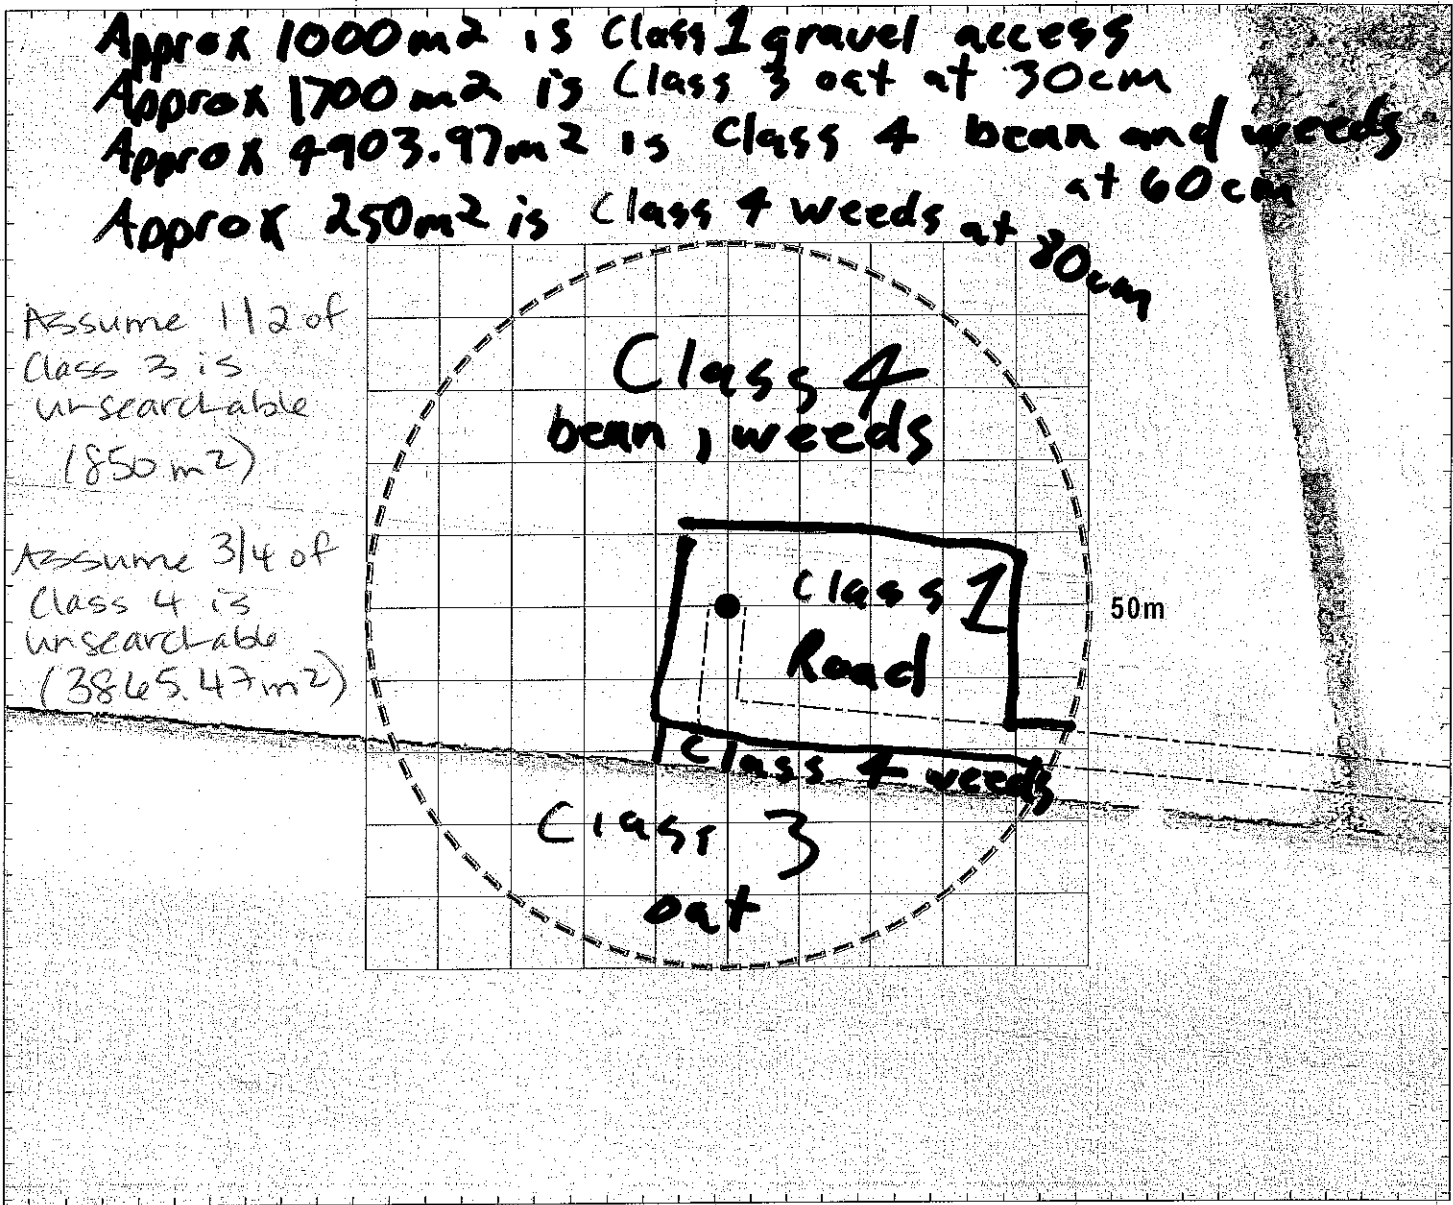 Approx 1000m2 is Class 1 gravel access
Approx 1700m2 is Class 3 oat at 30cm
Approx 4903.97m2 is Class 4 bean and weeds
at 60cm
Approx 250m2 is Class 4 weeds at 80cm
Assume 1/2 of
Class 3 is
unsearchable
(850m2)
Assume 3/4 of
Class 4 is
unsearchable
(3865.47m2)
Class 4
bean, weeds
Class 1
Road
50m
Class 4 weeds
Class 3
oat